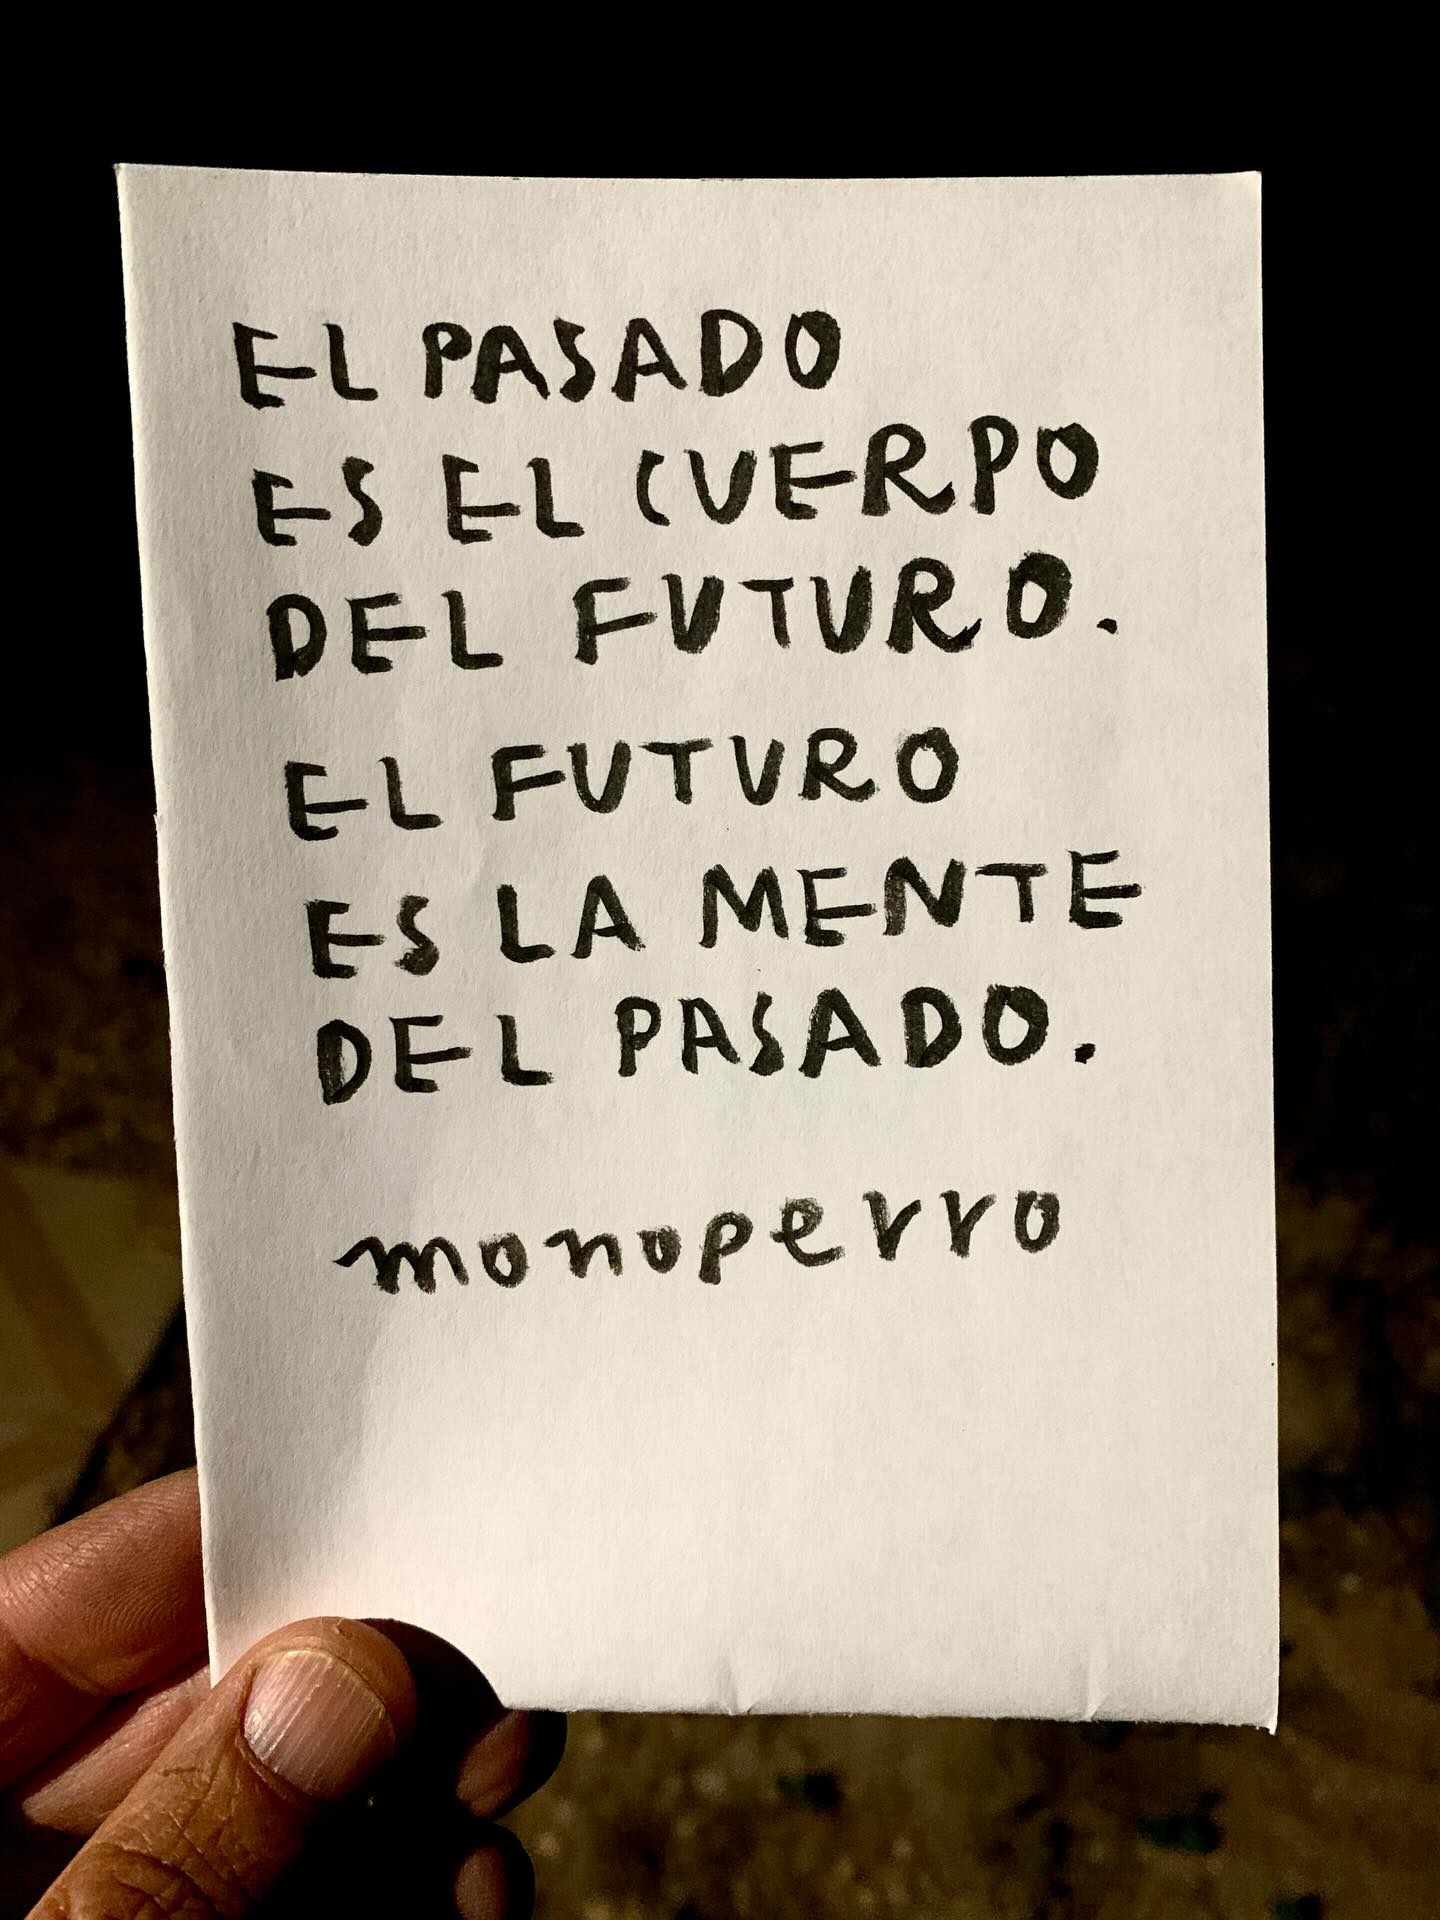 EL PASADO
ES EL CUERPO
DEL FUTURO.
EL FUTURO
ES LA MENTE
DEL PASADO.
monoperro